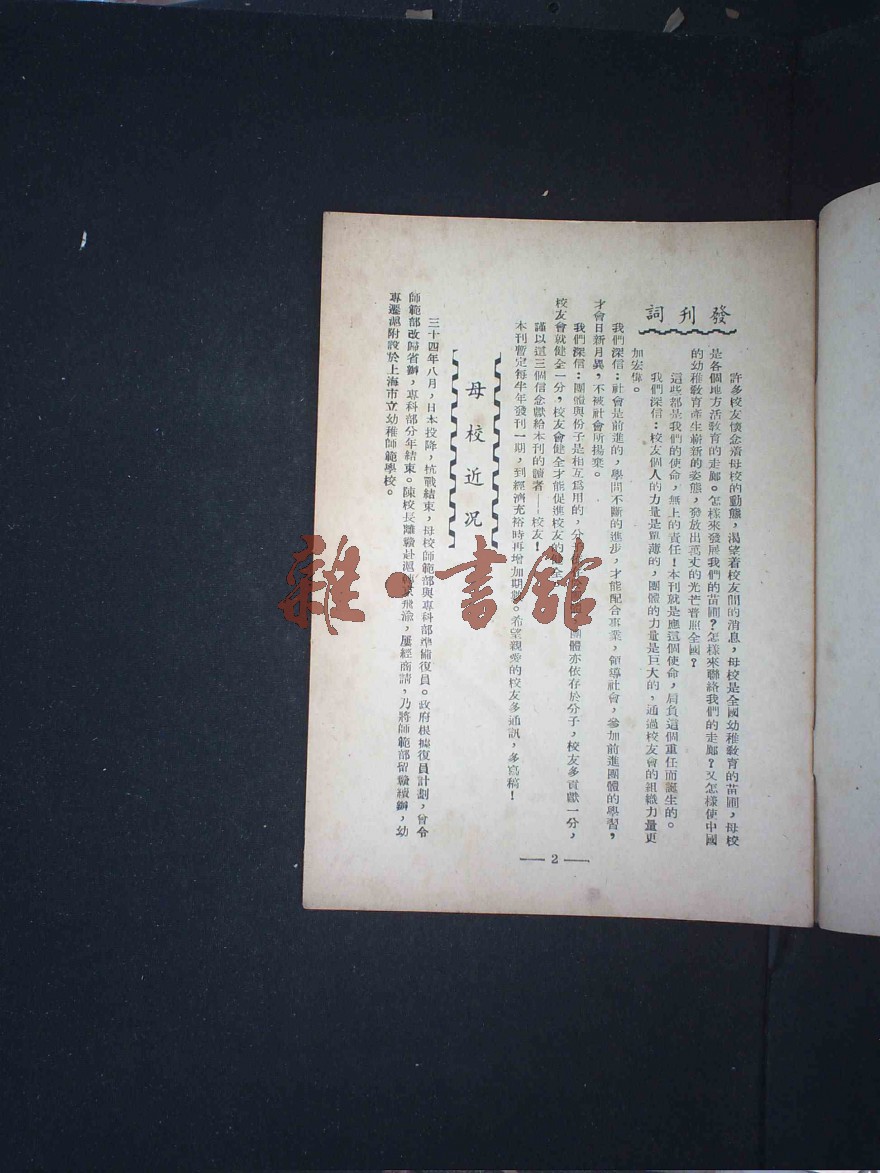 發刊詞
許多校友懷念着母校的動態，渴望着校友間的消息，母校是全國幼稚教育的苗圃，母校
是各個地方活教育的走廊。怎樣來發展我們的苗圃？怎樣來聯絡我們的走廊？又怎樣使中國
的幼稚教育產生嶄新的姿態，發放出萬丈的光芒普照全國？
這些都是我們的使命，無上的責任！本刊就是應這個使命，肩負這個重任而誕生的。
我們深信：校友個人的力量是單薄的，團體的力量是巨大的，通過校友會的組織力量更
加宏偉。
我們深信：社會是前進的，學問不斷的進步，才能配合事業，領導社會，參加前進團體的學習，
才會日新月異，不被社會所揚棄。
我們深信：團體與份子是相互為用的，分 團體亦依存於分子，校友多貢獻一分，
校友會就健全一分，校友會健全才能促進校友的健全
謹以這三個信念獻給本刊的讀者——校友！
本刊暫定每半年發刊一期，到經濟充裕時再增加期數。希望親愛的校友多通訊，多寫稿！
母校近況
三十四年八月，日本投降，抗戰結束，母校師範部與專科部準備復員。政府根據復員計劃，曾令
師範部改歸省辦，專科部分年結束。陳校長離贛赴滬 飛渝，屢經商請，乃將師範部留贛續辦，幼
專遷滬附設於上海市立幼稚師範學校。
— 2 —
雜·書館